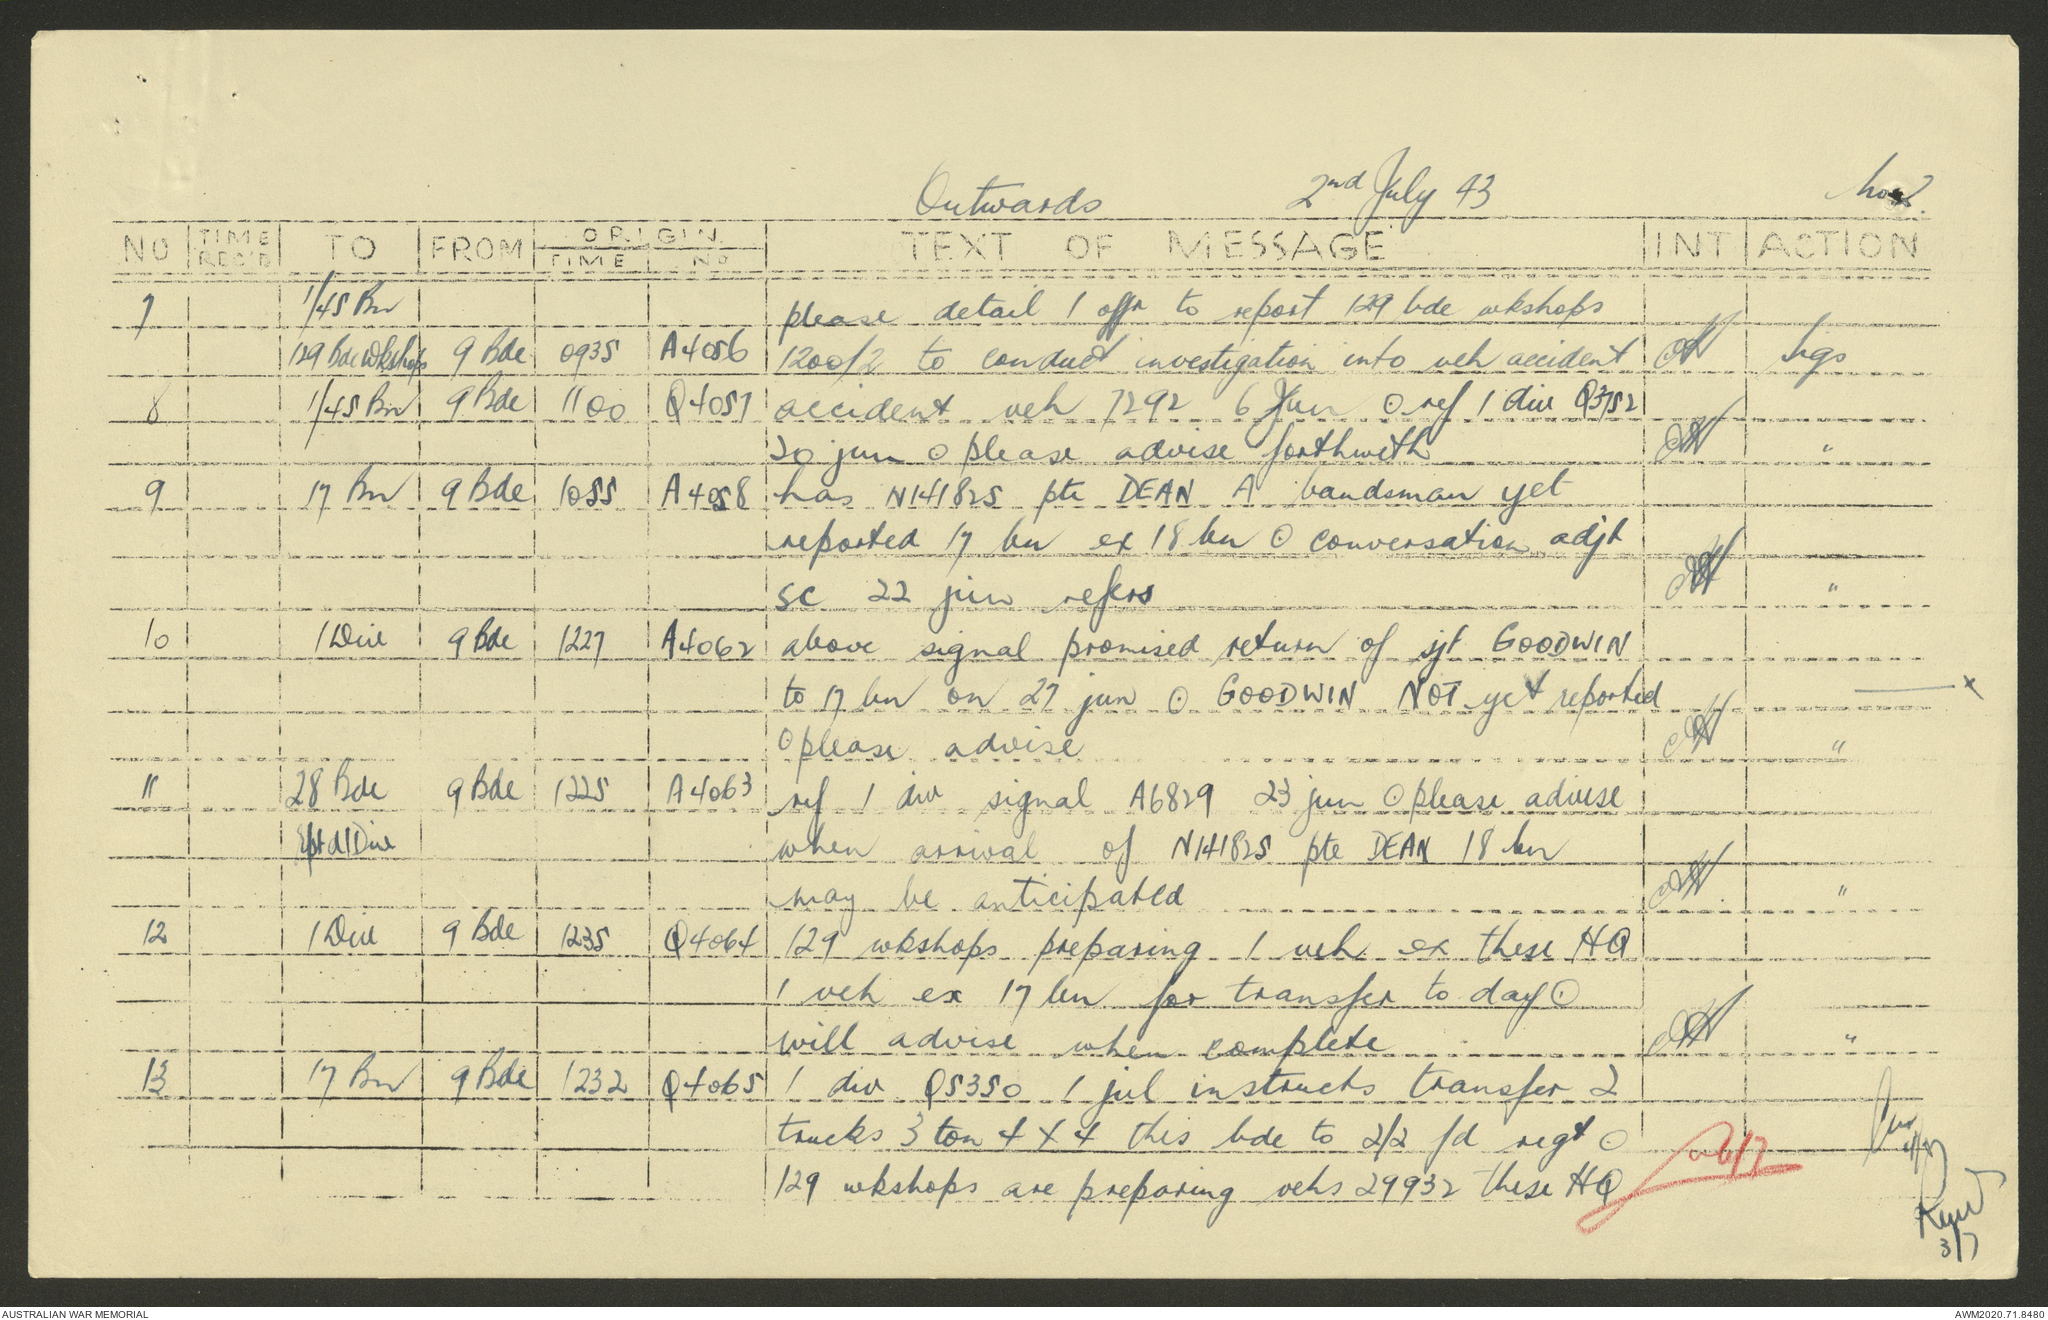 Outwards 2nd July 43 No 2.
NO TIME REC'D TO FROM ORIGIN TIME NO TEXT OF MESSAGE INT ACTION
7 1/45 Bn please detail 1 offr to report 129 bde wkshops
129 Bde Wkshops 9 Bde 0935 A4056 1200/2 to conduct investigation into veh accident
8 1/45 Bn 9 Bde 1100 Q4057 accident veh 7292 6 Jun ⊙ ref 1 div Q3752
20 jun ⊙ please advise forthwith "
9 17 Bn 9 Bde 1055 A4058 has N141825 pte DEAN A bandsman yet
reported 17 bn ex 18 bn ⊙ conversation adjt
SC 22 jun refers "
10 1 Div 9 Bde 1227 A4062 above signal promised return of sjt GOODWIN
to 17 bn on 27 jun ⊙ GOODWIN NOT yet reported
⊙ please advise "
11 28 Bde 9 Bde 1225 A4063 ref 1 div signal A6829 23 jun ⊙ please advise
Rptd 1 Div when arrival of N141825 pte DEAN 18 bn
may be anticipated "
12 1 Div 9 Bde 1235 Q4064 129 wkshops preparing 1 veh ex these HQ
1 veh ex 17 bn for transfer to day ⊙
will advise when complete "
13 17 Bn 9 Bde 1232 Q4065 1 div Q5350 1 jul instructs transfer 2
trucks 3 ton 4 X 4 this bde to 2/2 fd regt ⊙
129 wkshops are preparing vehs 29932 these HQ
3/7
AUSTRALIAN WAR MEMORIAL AWM2020.71.8480